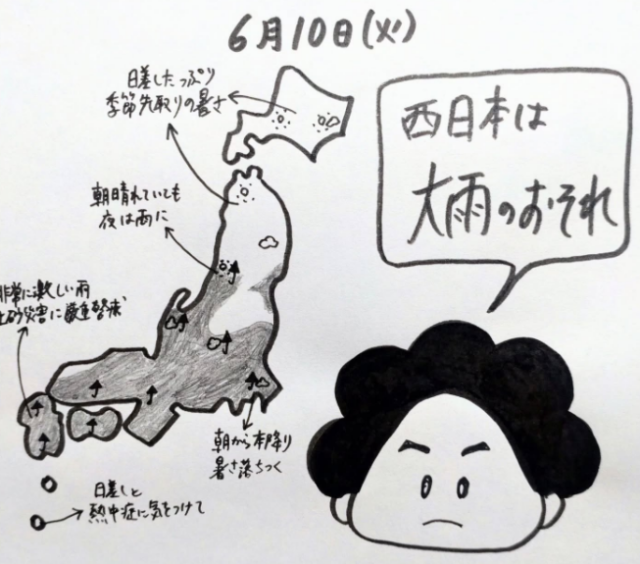 6月10日(火)
日差したっぷり
季節先取りの暑さ
西日本は
大雨のおそれ
朝晴れていても
夜は雨に
非常に激しい雨
土砂災害に厳重警戒
朝から本降り
暑さ落ちつく
日差しと
熱中症に気をつけて